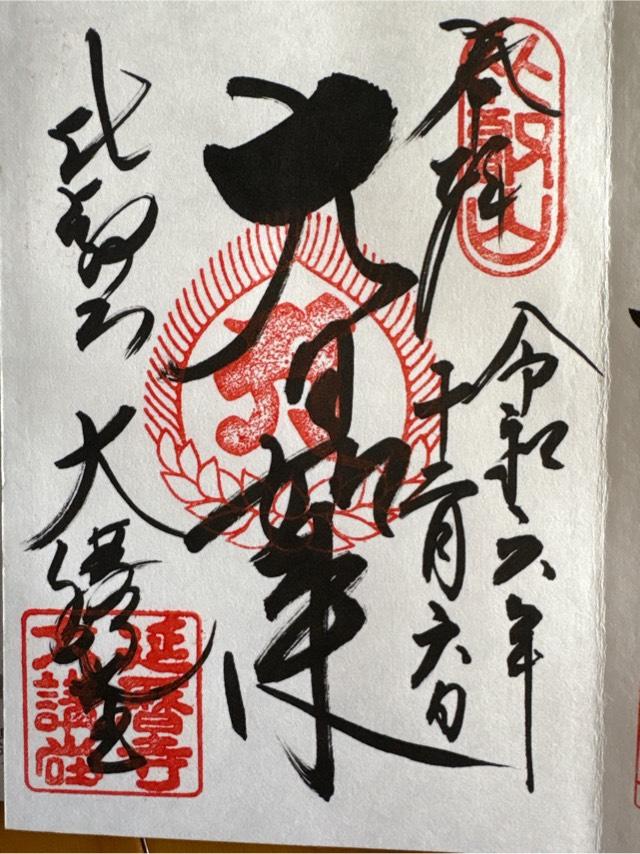 奉拝
比叡山
令和六年
十二月六日
大日如来
比叡山 大講堂
延暦寺
大講堂